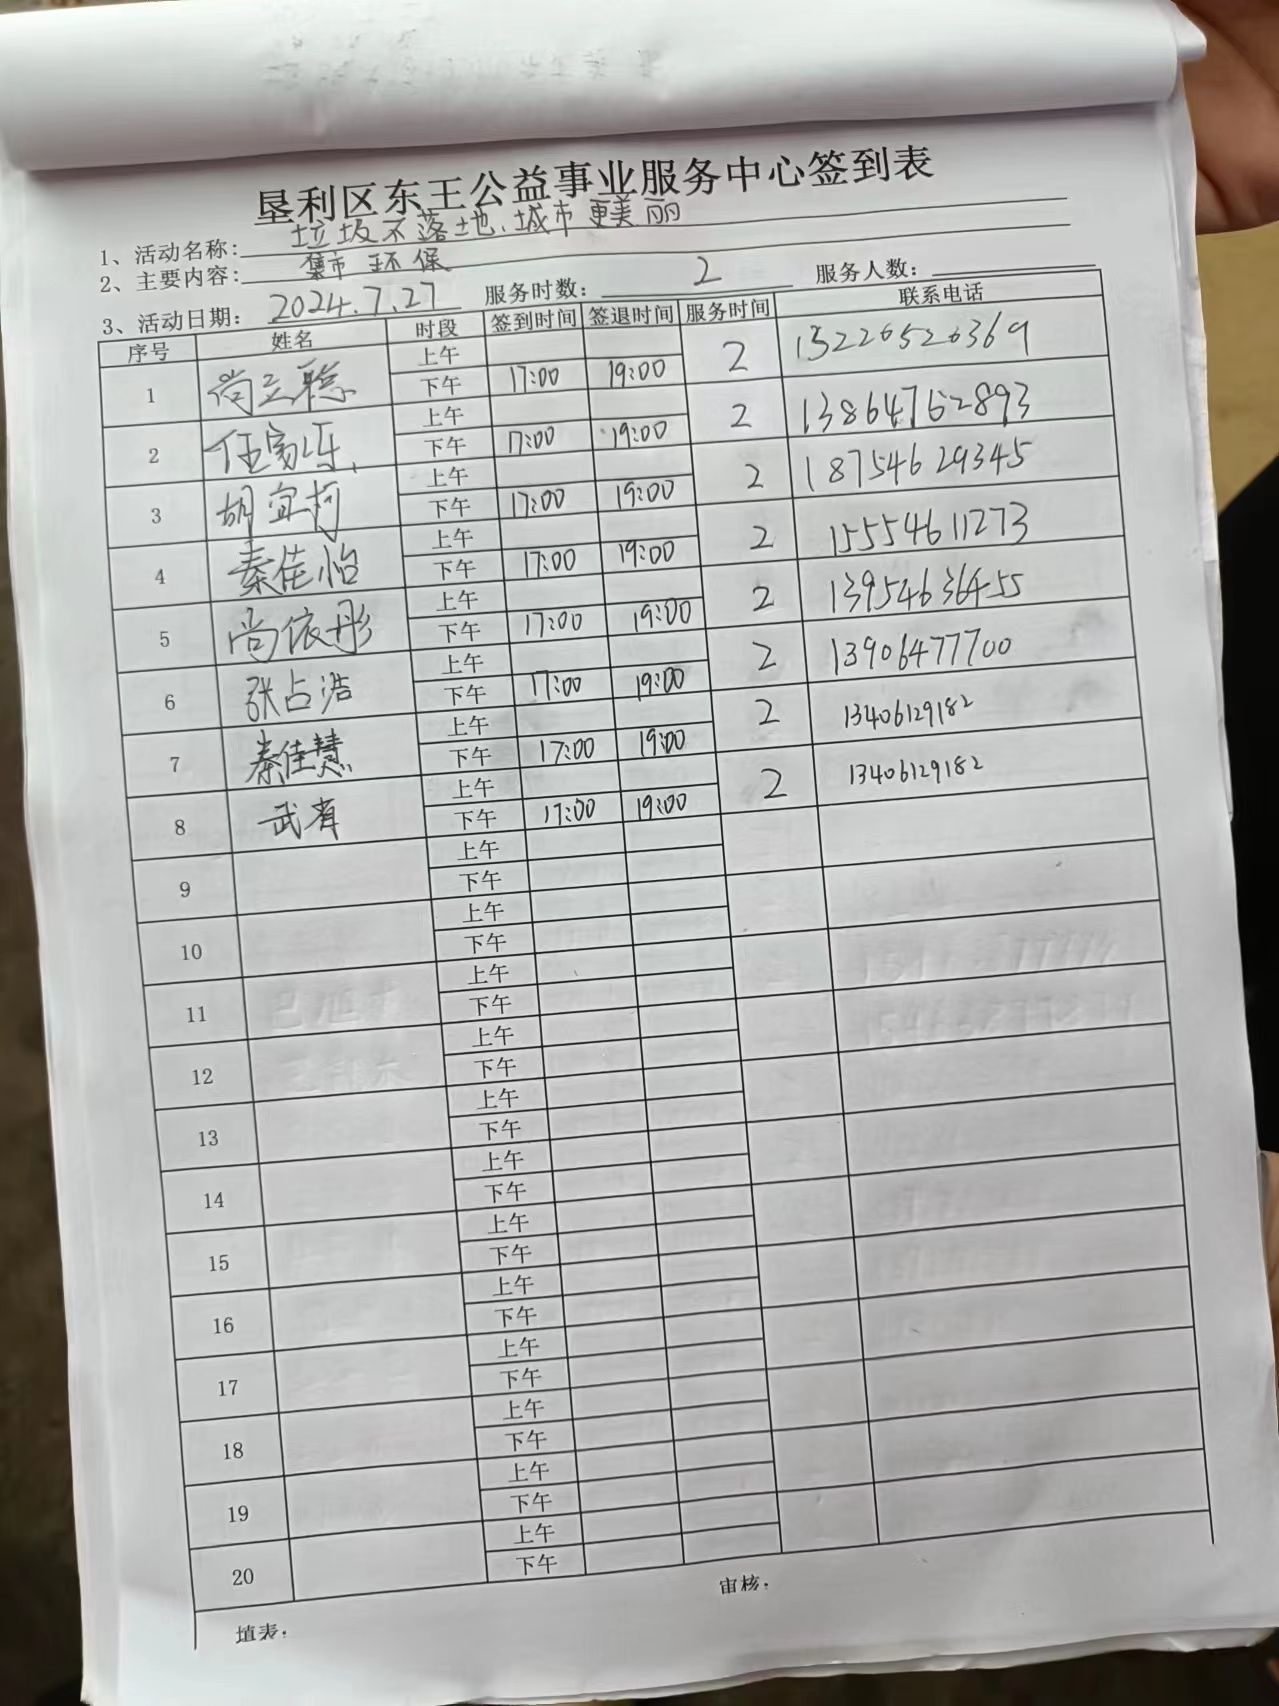 垦利区东王公益事业服务中心签到表
1、活动名称: 垃圾不落地、城市更美丽
2、主要内容: 集市 环保
3、活动日期: 2024.7.27 服务时数: 2 服务人数:
序号 姓名 时段 签到时间 签退时间 服务时间 联系电话
上午
1 尚立聪 下午 17:00 19:00 2 15226526369
上午
2 任家乐 下午 17:00 19:00 2 13864762893
上午
3 胡宜柯 下午 17:00 19:00 2 18754629345
上午
4 秦佳怡 下午 17:00 19:00 2 15554611273
上午
5 尚依彤 下午 17:00 19:00 2 13954636455
上午
6 张占浩 下午 17:00 19:00 2 13906477700
上午
7 秦佳慧 下午 17:00 19:00 2 13406129182
上午
8 武宥 下午 17:00 19:00 2 13406129182
上午
9 下午
上午
10 下午
上午
11 下午
上午
12 下午
上午
13 下午
上午
14 下午
上午
15 下午
上午
16 下午
上午
17 下午
上午
18 下午
上午
19 下午
上午
20 下午
填表: 审核: